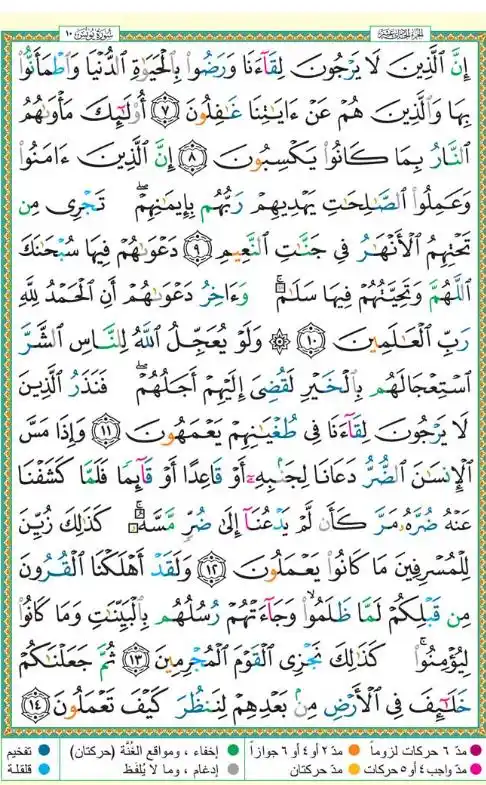 الجزء الحادي عشر
سورة يونس ١٠
إِنَّ الَّذِينَ لَا يَرْجُونَ لِقَآءَنَا وَرَضُوا۟ بِالْحَيَوٰةِ الدُّنْيَا وَاطْمَأَنُّوا۟
بِهَا وَالَّذِينَ هُمْ عَنْ ءَايَـٰتِنَا غَـٰفِلُونَ ٧ أُو۟لَـٰٓئِكَ مَأْوَىٰهُمُ
النَّارُ بِمَا كَانُوا۟ يَكْسِبُونَ ٨ إِنَّ الَّذِينَ ءَامَنُوا۟
وَعَمِلُوا۟ الصَّـٰلِحَـٰتِ يَهْدِيهِمْ رَبُّهُم بِإِيمَـٰنِهِمْ ۖ تَجْرِى مِن
تَحْتِهِمُ الْأَنْهَـٰرُ فِى جَنَّـٰتِ النَّعِيمِ ٩ دَعْوَىٰهُمْ فِيهَا سُبْحَـٰنَكَ
اللَّهُمَّ وَتَحِيَّتُهُمْ فِيهَا سَلَـٰمٌ ۚ وَءَاخِرُ دَعْوَىٰهُمْ أَنِ الْحَمْدُ لِلَّهِ
رَبِّ الْعَـٰلَمِينَ ١٠ ۞ وَلَوْ يُعَجِّلُ اللَّهُ لِلنَّاسِ الشَّرَّ
اسْتِعْجَالَهُم بِالْخَيْرِ لَقُضِىَ إِلَيْهِمْ أَجَلُهُمْ ۖ فَنَذَرُ الَّذِينَ
لَا يَرْجُونَ لِقَآءَنَا فِى طُغْيَـٰنِهِمْ يَعْمَهُونَ ١١ وَإِذَا مَسَّ
الْإِنسَـٰنَ الضُّرُّ دَعَانَا لِجَنۢبِهِۦٓ أَوْ قَاعِدًا أَوْ قَآئِمًا فَلَمَّا كَشَفْنَا
عَنْهُ ضُرَّهُۥ مَرَّ كَأَن لَّمْ يَدْعُنَآ إِلَىٰ ضُرٍّ مَّسَّهُۥ ۚ كَذَٰلِكَ زُيِّنَ
لِلْمُسْرِفِينَ مَا كَانُوا۟ يَعْمَلُونَ ١٢ وَلَقَدْ أَهْلَكْنَا الْقُرُونَ
مِن قَبْلِكُمْ لَمَّا ظَلَمُوا۟ ۙ وَجَآءَتْهُمْ رُسُلُهُم بِالْبَيِّنَـٰتِ وَمَا كَانُوا۟
لِيُؤْمِنُوا۟ ۚ كَذَٰلِكَ نَجْزِى الْقَوْمَ الْمُجْرِمِينَ ١٣ ثُمَّ جَعَلْنَـٰكُمْ
خَلَـٰٓئِفَ فِى الْأَرْضِ مِنۢ بَعْدِهِمْ لِنَنظُرَ كَيْفَ تَعْمَلُونَ ١٤
مدّ ٦ حركات لزوماً مدّ ٢ أو ٤ أو ٦ جوازاً إخفاء ، ومواقع الغُنَّة (حركتان) تفخيم
مدّ واجب ٤ أو ٥ حركات مدّ حركتان إدغام ، وما لا يُلفَظ قلقلة